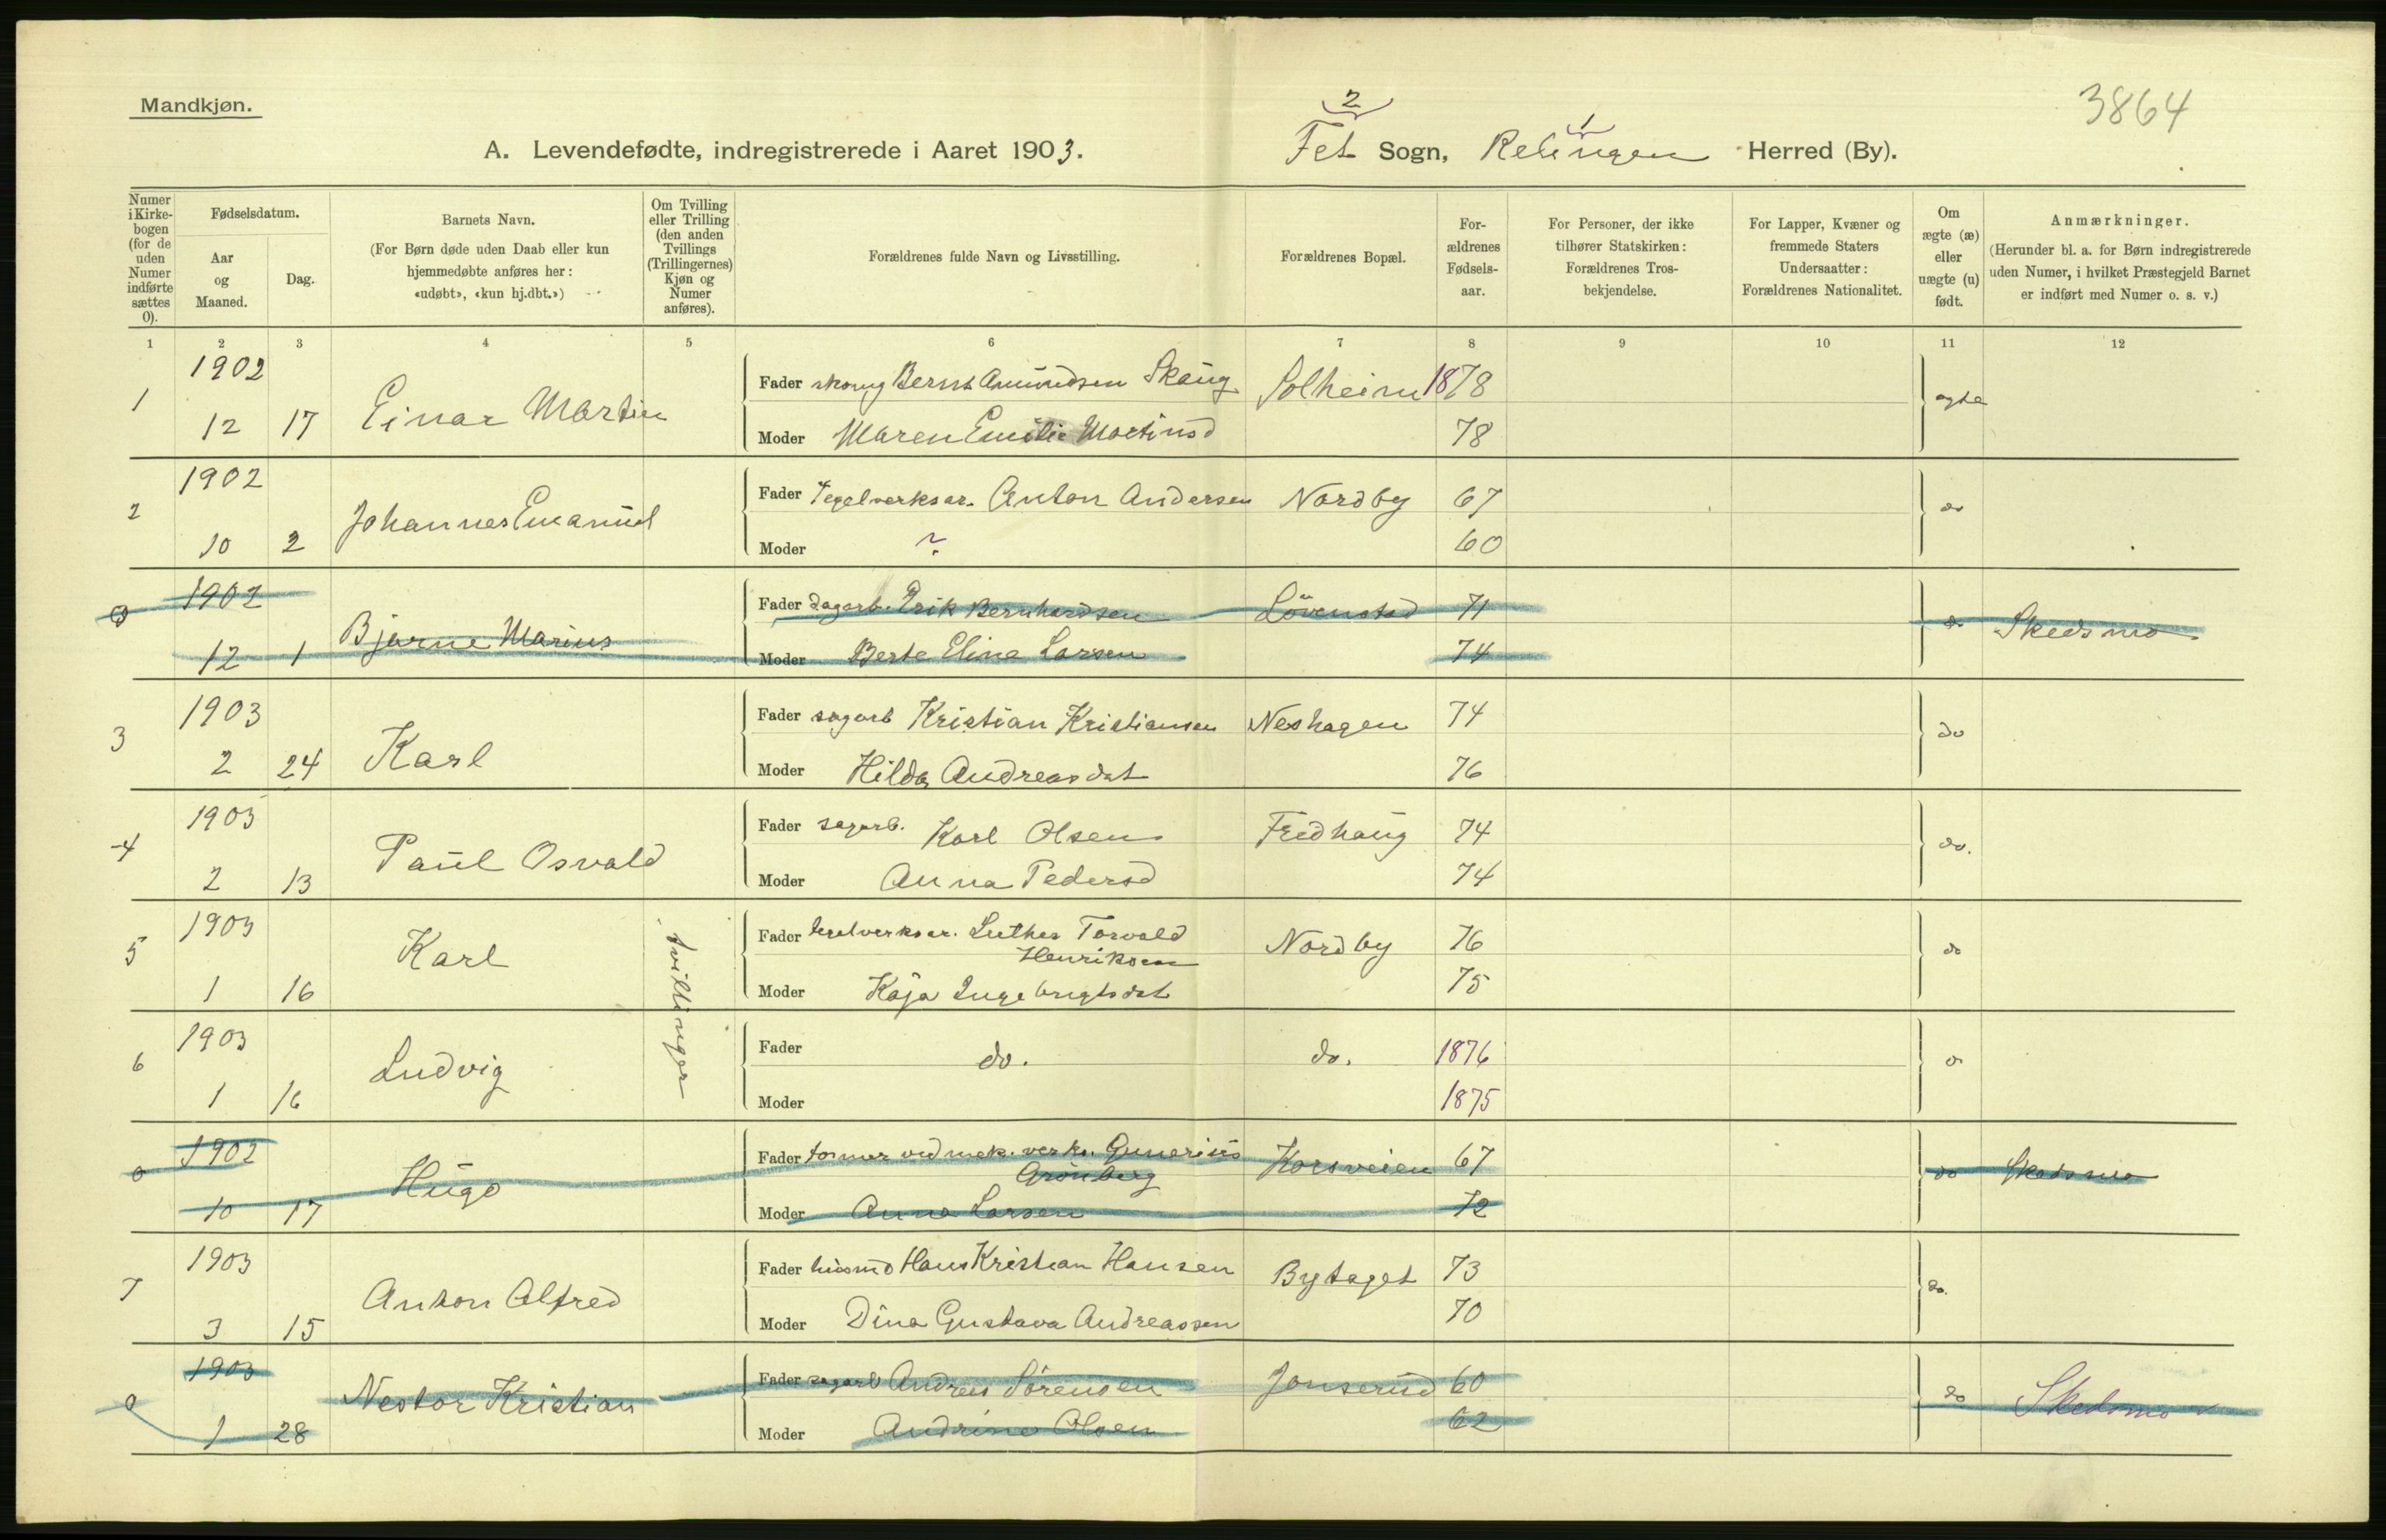 Mandkjøn.
3864
A. Levendefødte, indregistrerede i Aaret 1903.
2
Fet Sogn, Relingen Herred (By).
1
Numer i Kirke-bogen (for de uden Numer indførte sættes 0).
Fødselsdatum.
Aar og Maaned.
Dag.
Barnets Navn.
(For Børn døde uden Daab eller kun hjemmedøbte anføres her: «udøbt», «kun hj.dbt.»)
Om Tvilling eller Trilling (den anden Tvillings (Trillingernes) Kjøn og Numer anføres).
Forældrenes fulde Navn og Livsstilling.
Forældrenes Bopæl.
For-ældrenes Fødsels-aar.
For Personer, der ikke tilhører Statskirken: Forældrenes Tros-bekjendelse.
For Lapper, Kvæner og fremmede Staters Undersaatter: Forældrenes Nationalitet.
Om ægte (æ) eller uægte (u) født.
Anmærkninger.
(Herunder bl. a. for Børn indregistrerede uden Numer, i hvilket Præstegjeld Barnet er indført med Numer o. s. v.)
1 2 3 4 5 6 7 8 9 10 11 12
1 1902 12 17 Einar Martin
Fader Bernt Amundsen Skaug Solheim 1878 ægte
Moder Maren Emilie Martinsd 78
2 1902 10 2 Johannes Emanuel
Fader Tegelverksar. Anton Andersen Nordby 67 do
Moder ? 60
0 1902 12 1 Bjarne Marius
Fader dagarb. Erik Bernhardsen Lövenstad 71 do Skedsmo
Moder Berte Eline Larsen 74
3 1903 2 24 Karl
Fader sagarb Kristian Kristiansen Neshagen 74 do
Moder Hilda Andreasdat 76
4 1903 2 13 Paul Osvald
Fader sagarb. Karl Olsen Fredhaug 74 do.
Moder Anna Pedersd 74
5 1903 1 16 Karl tvillinger
Fader tegelverksar. Luther Torvald Henriksen Nordby 76 do
Moder Kaja Ingebrigtsdat 75
6 1903 1 16 Ludvig
Fader do. do. 1876 do
Moder 1875
0 1902 10 17 Hugo
Fader former ved mek. verks. Gunerius Grönberg Korsveien 67 do Skedsmo
Moder Anna Larsen 72
7 1903 3 15 Anton Alfred
Fader husmd Hans Kristian Hansen Bytaget 73 do.
Moder Dina Gustava Andreassen 70
0 1903 1 28 Nestor Kristian
Fader sagarb Andreas Sörensen Jonserud 60 do Skedsmo
Moder Andrine Olsen 62